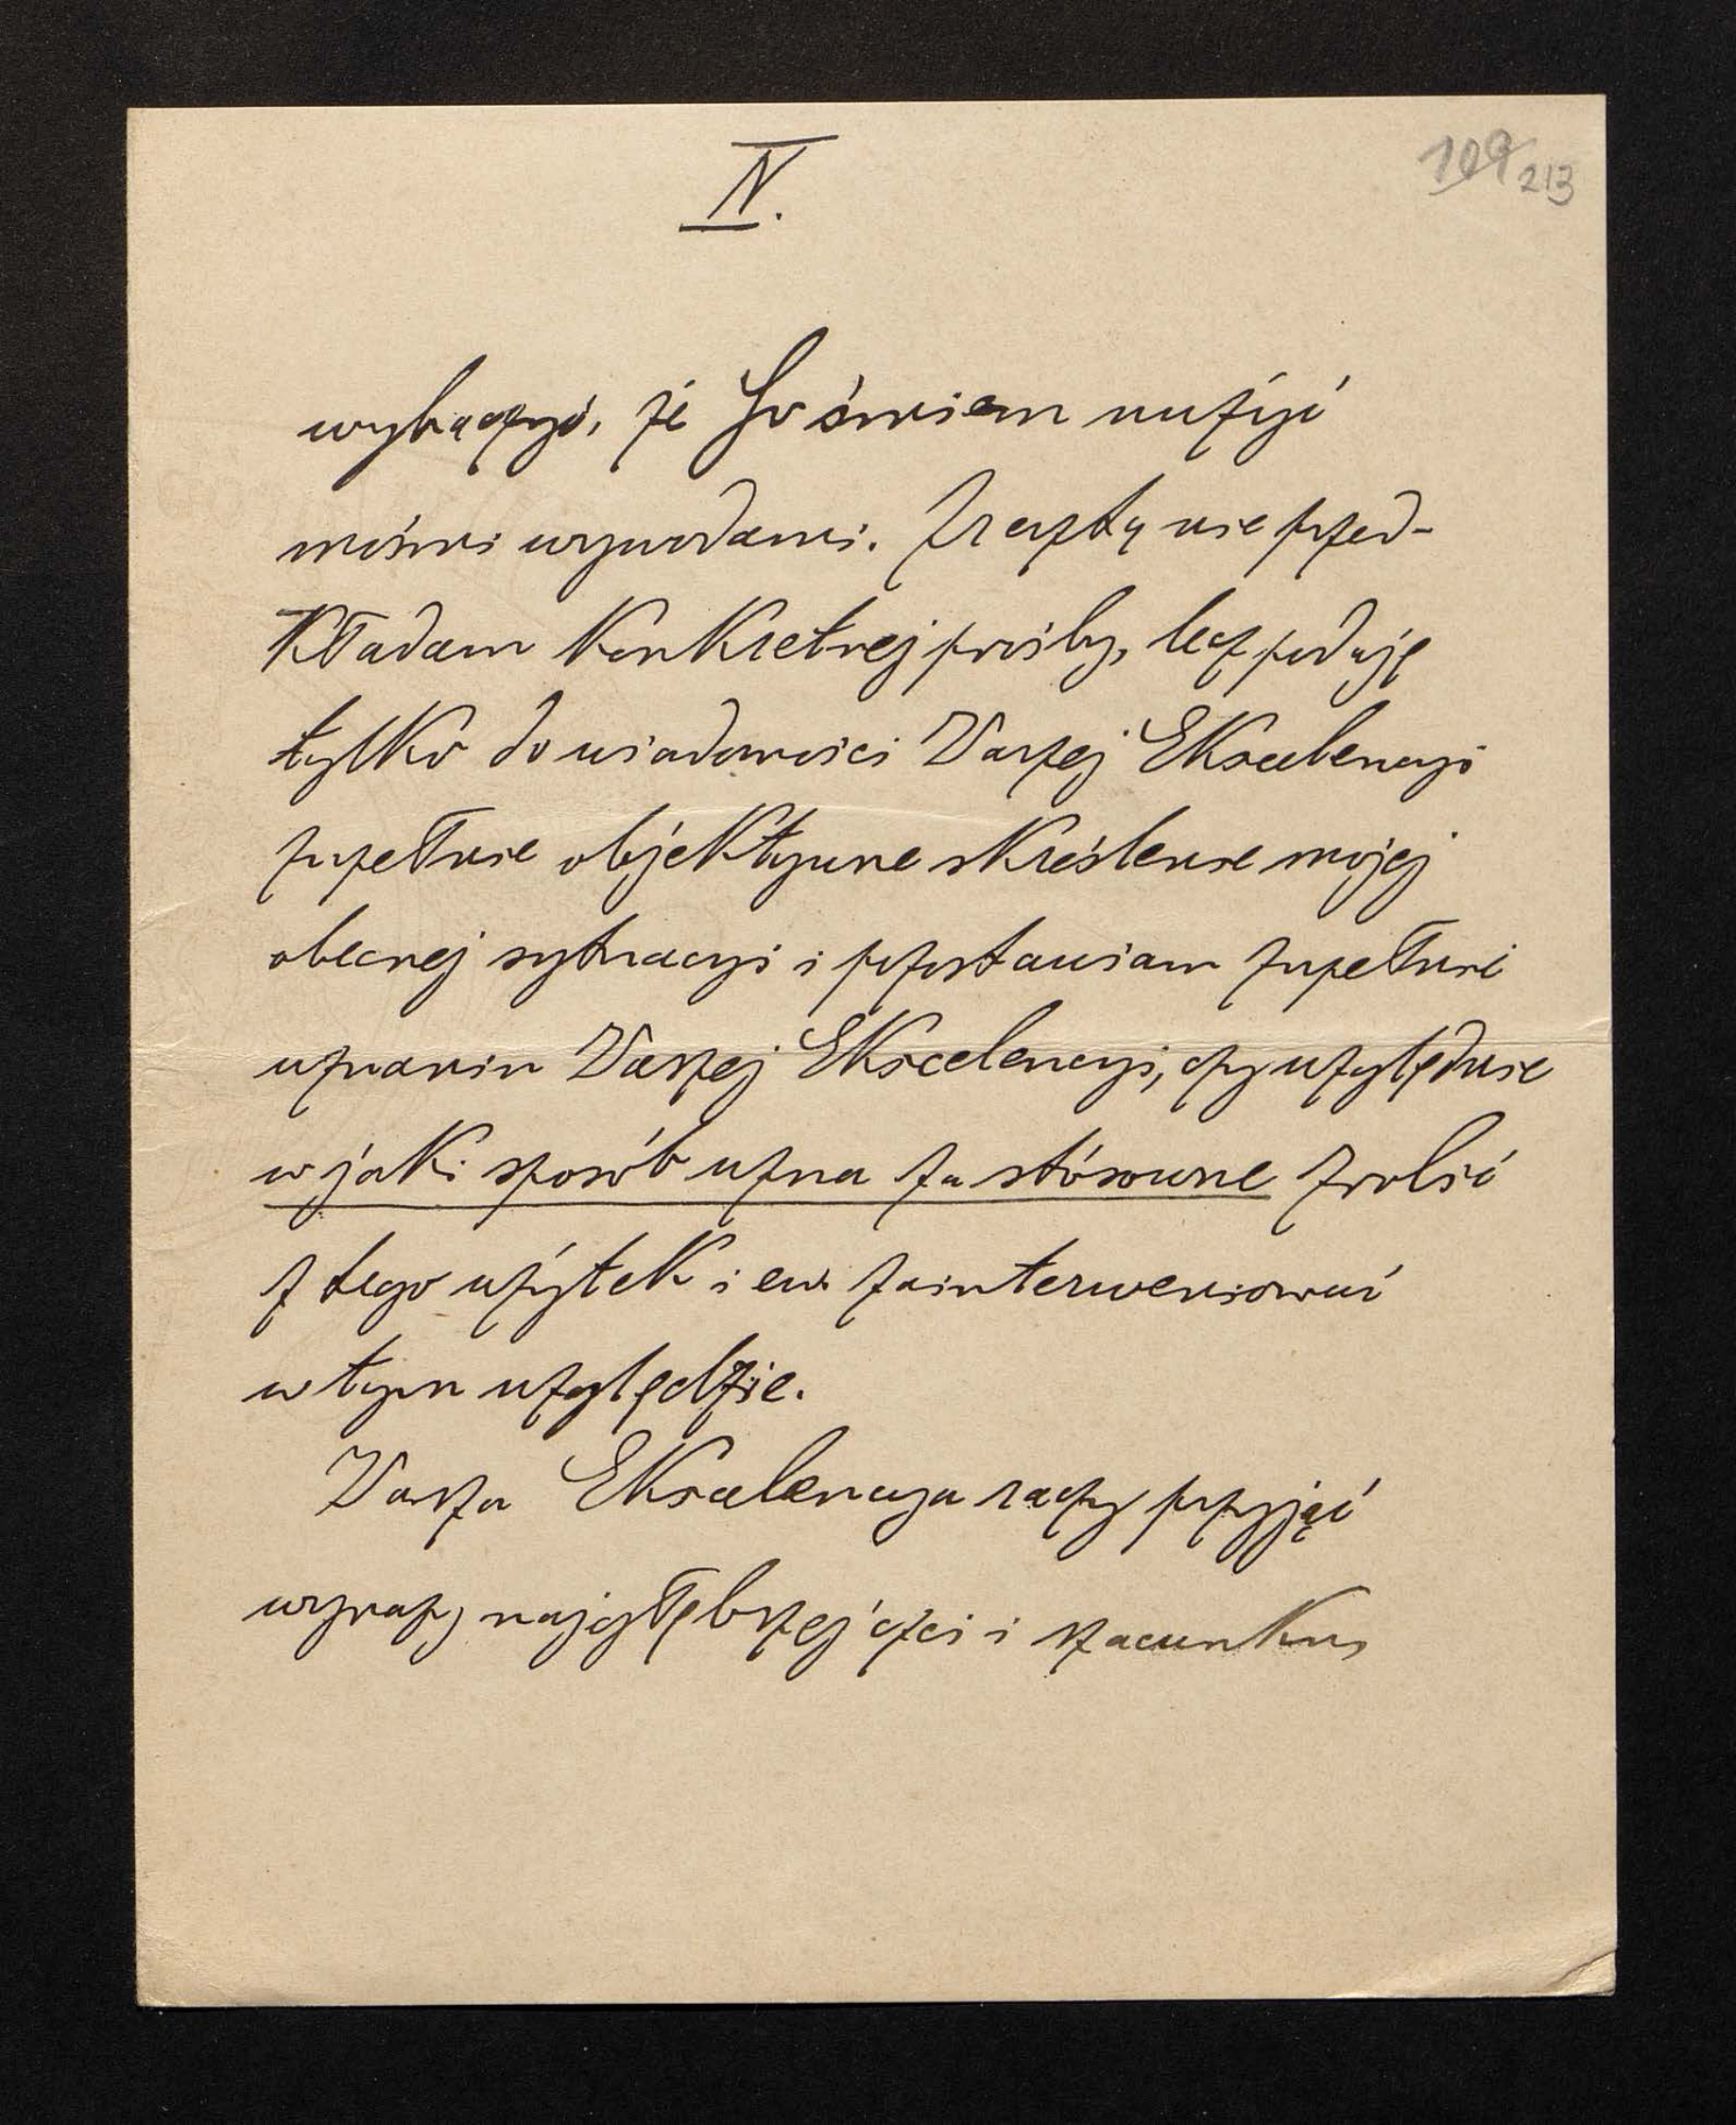 IV.
109 213
wybaczyć, że Go śmiem nużyć
moimi wywodami. Zresztą nie przed-
kładam konkretnej prośby, lecz podaję
tylko do wiadomości Waszej Ekscelencyi
zupełnie objektywne skreślenie mojej
obecnej sytuacyi i pozostawiam zupełnie
uznaniu Waszej Ekscelencyi, czy względnie
w jaki sposób uzna za stósowne zrobić
z tego użytek i ew. zainterweniować
w tym względzie.
Wasza Ekscelencya raczy przyjąć
wyrazy najgłębszej czci i szacunku,